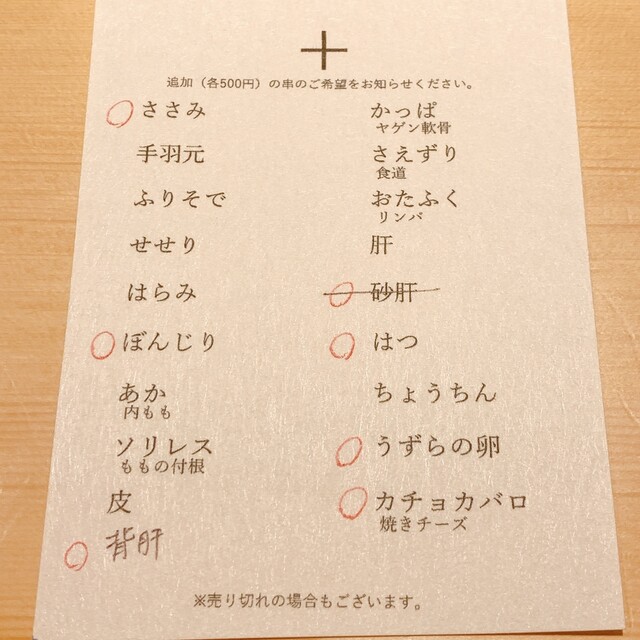 追加（各500円）の串のご希望をお知らせください。
ささみ
手羽元
ふりそで
せせり
はらみ
ぼんじり
あか
内もも
ソリレス
ももの付根
皮
背肝
かっぱ
ヤゲン軟骨
さえずり
食道
おたふく
リンパ
肝
砂肝
はつ
ちょうちん
うずらの卵
カチョカバロ
焼きチーズ
※売り切れの場合もございます。